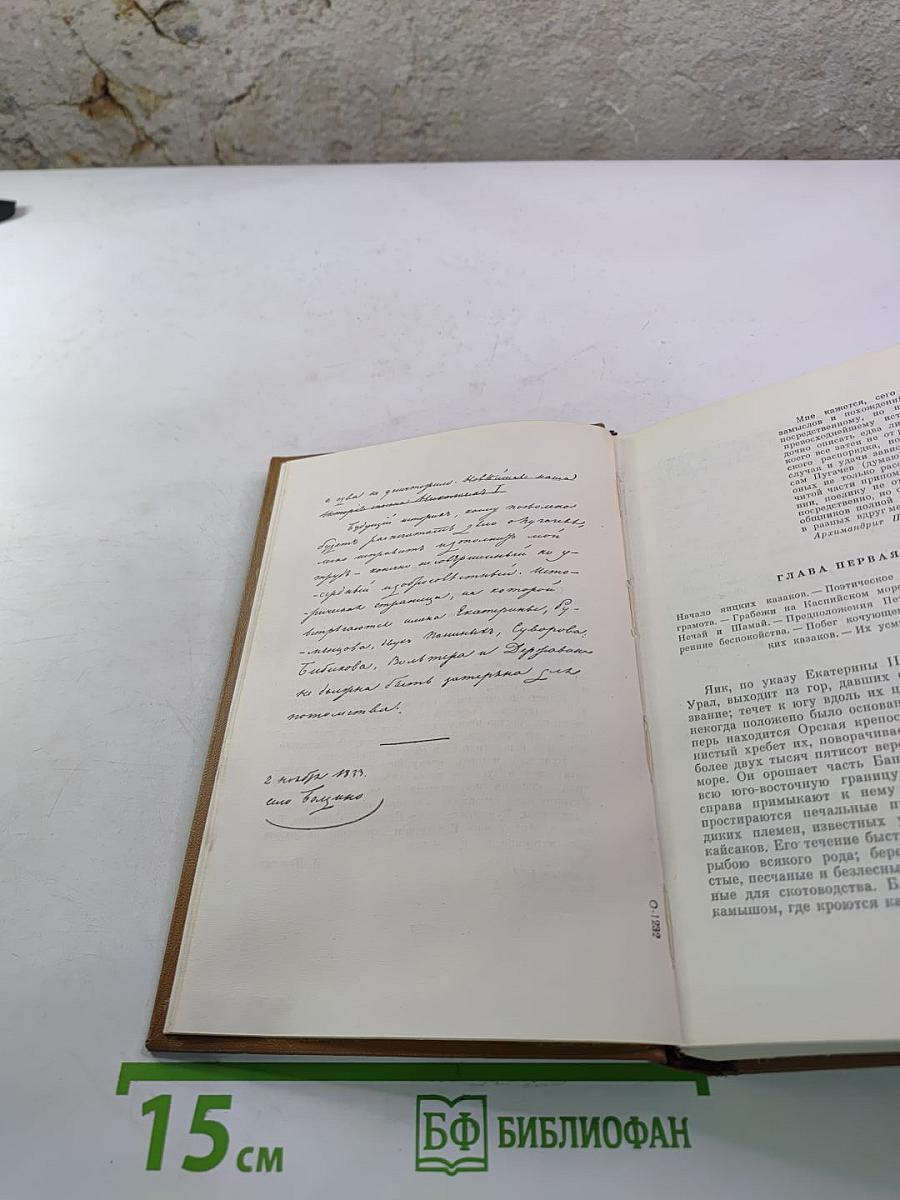 будущій историкъ, кому позволено
будетъ распечатать дѣло о Пугачевѣ,
легко исправитъ и дополнитъ мой
трудъ - конечно несовершенный но у-
-сердный и добросовѣстный. Исто-
-рическая страница, на которой
встрѣчаются имена Екатерины, Ру-
-мянцова, двухъ Паниныхъ, Суворова,
Бибикова, Вольтера и Державина
не должна быть затеряна для
потомства.
2 ноября 1833.
село Болдино
О-1232
Мне кажется, сего
замыслов и похождений
посредственному, но
превосходнейшему ист
коего все затеи не от р
ского распорядка, но
случая и удачи завис
сам Пугачев (думаю
оных не только расс
читой части припом
нии, поелику не от
посредственно, но с
общников полной
в разных вдруг ме
Архимандрит П
ГЛАВА ПЕРВАЯ
Начало яицких казаков. — Поэтическое
грамота. — Грабежи на Каспийском море
Нечай и Шамай. — Предположения Пет
ренние беспокойства. — Побег кочующе
ких казаков. — Их усм
Яик, по указу Екатерины II
Урал, выходит из гор, давших е
звание; течет к югу вдоль их ц
некогда положено было основан
перь находится Орская крепос
нистый хребет их, поворачивае
более двух тысяч пятисот вер
море. Он орошает часть Баш
всю юго-восточную границу
справа примыкают к нему
простираются печальные п
диких племен, известных
кайсаков. Его течение быст
рыбою всякого рода; бере
стые, песчаные и безлесны
ные для скотоводства. Бл
камышом, где кроются ка
15 см
БФ БИБЛИОФАН